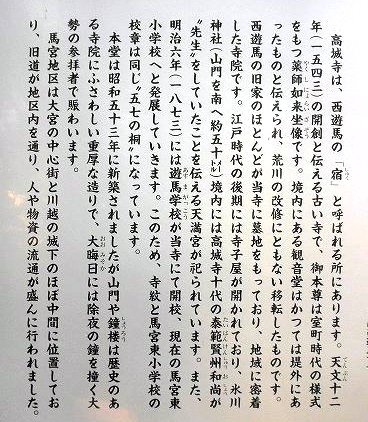 高城寺は、西遊馬の「宿」と呼ばれる所にあります。天文十二
年(一五四三)の開創と伝える古い寺で、御本尊は室町時代の様式
をもつ薬師如来坐像です。境内にある観音堂はかつては堤外にあ
ったものと伝えられ、荒川の改修にともない移転したものです。
西遊馬の旧家のほとんどが当寺に墓地をもっており、地域に密着
した寺院です。江戸時代の後期には寺子屋が開かれており、氷川
神社(山門を南へ約五十㍍)境内には高城寺十代の泰範賢州和尚が
〝先生〟をしていたことを伝える天満宮が祀られています。また、
明治六年(一八七三)には遊馬学校が当寺にて開校、現在の馬宮東
小学校へと発展していきます。このため、寺紋と馬宮東小学校の
校章は同じ〝五七の桐〟になっています。
本堂は昭和五十三年に新築されましたが山門や鐘楼は歴史のあ
る寺院にふさわしい重厚な造りで、大晦日には除夜の鐘を撞く大
勢の参拝者で賑わいます。
馬宮地区は大宮の中心街と川越の城下のほぼ中間に位置してお
り、旧道が地区内を通り、人や物資の流通が盛んに行われました。